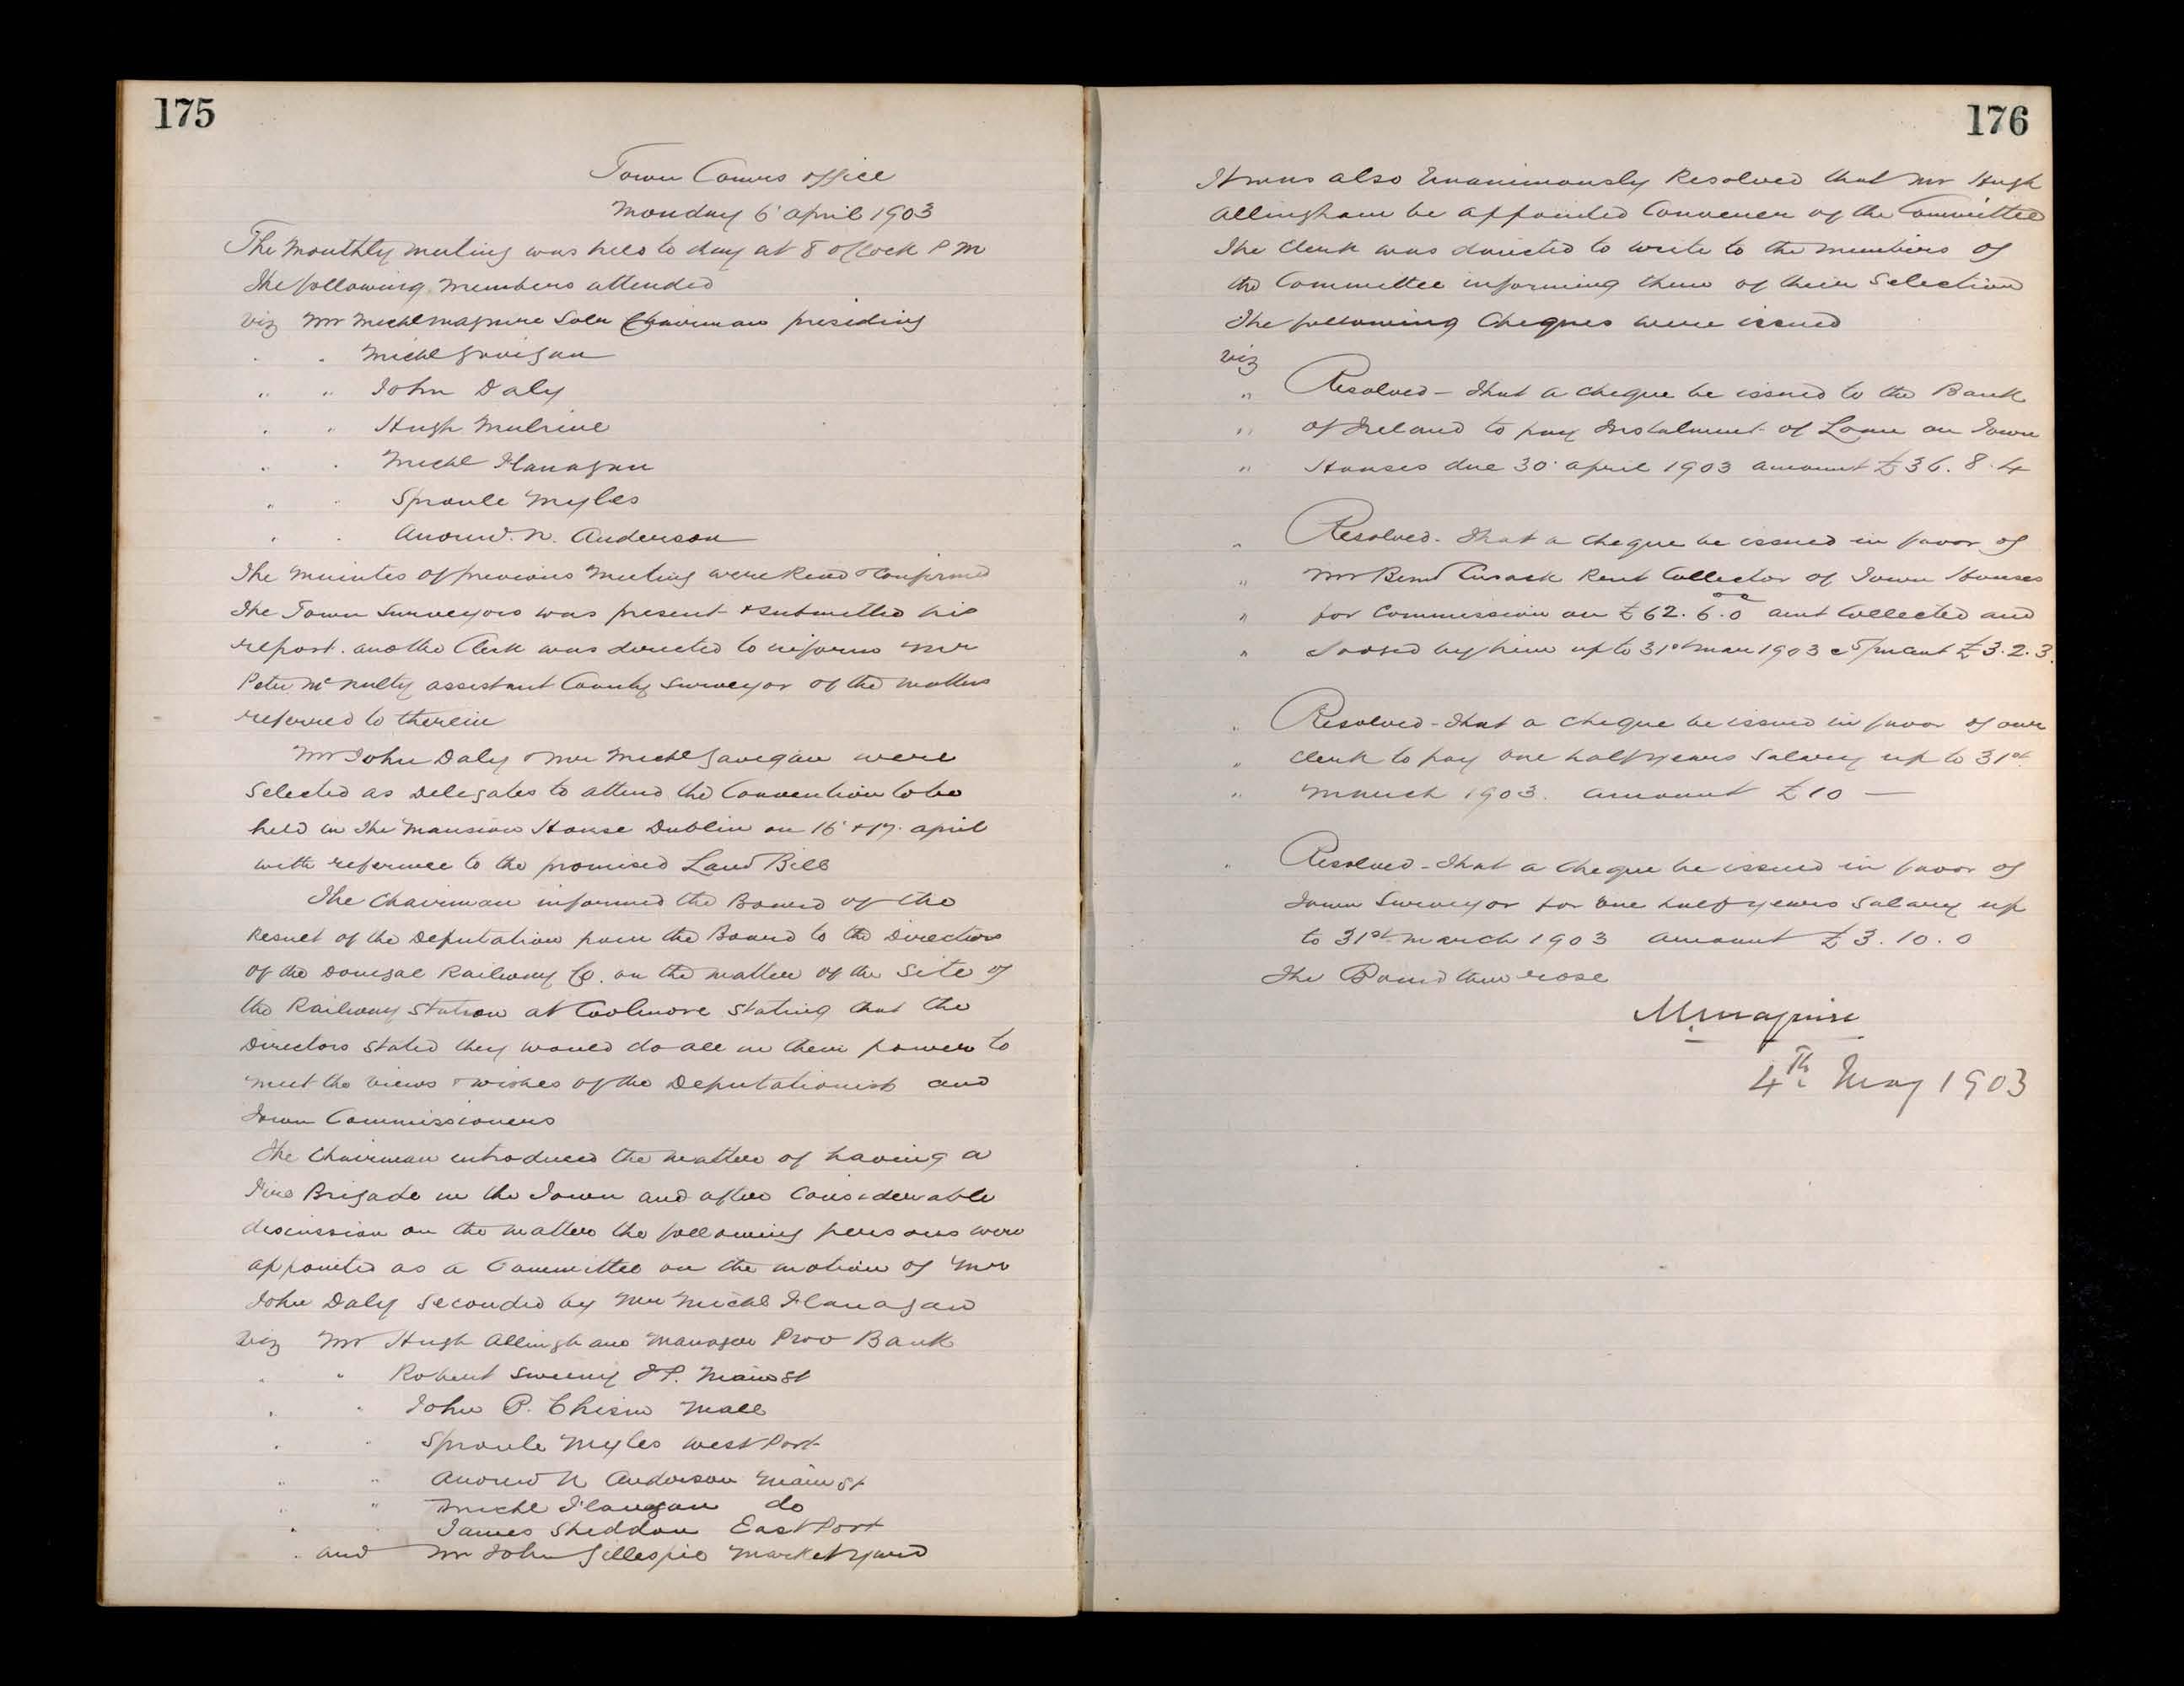 175
Town Comrs office
Monday 6' april 1903
The Monthly meeting was held to day at 8 oClock P M
The following Members attended
Viz Mr Michl Maguire Solr Chairman presiding
" " Michl Gavigan
" " John Daly
" " Hugh Mulrine
" " Michl Flanagan
" " Sproule Myles
" " Andrew. N. Anderson
The Minutes of previous Meeting were Read & Confirmed
The Town Surveyors was present & submitted his
report. and the Clerk was directed to inform Mr
Peter McNulty assistant County Surveyor of the matters
referred to therein
Mr John Daly & Mr Michl Gavigan were
Selected as Delegates to attend the Convention to be
held in the Mansion House Dublin on 16' & 17. april
with reference to the promised Land Bill
The Chairman informed the Board of the
Result of the Deputation from the Board to the Directors
of the Donegal Railway Co. on the matter of the Site of
the Railway Station at Coolmore Stating that the
Directors Stated they would do all in their power to
meet the views & wishes of the Deputationist and
Town Commissioners
The Chairman introduced the matter of having a
Fire Brigade in the Town and after Considerable
discussion on the matter the following persons were
appointed as a Committee on the motion of Mr
John Daly Seconded by Mr Michl Flanagan
Viz Mr Hugh Allingham Manager Prov Bank
" " Robert Sweeny J P. Main St
" " John P. Chism Mall
" " Sproule Myles West Port
" " Andrew N Anderson Main St
" " Michl Flanagan do
" " James Sheddon East Port
" and Mr John Gillespie Market yard
176
It was also Unanimously Resolved that Mr Hugh
Allingham be appointed Convener of the Committee
The Clerk was directed to write to the members of
the Committee informing them of their Selection
The following Cheques were issued
Viz
" Resolved - That a Cheque be issued to the Bank
" of Ireland to pay Instalment of Loan on Town
" Houses due 30' april 1903 amount £36. 8. 4
" Resolved - That a Cheque be issued in favor of
" Mr Bernd Cusack Rent Collector of Town Houses
" for Commission on £62. 6. 0 amt Collected and
" Lodged by him up to 31st Mar 1903 @ 5 pr cent £3. 2. 3
" Resolved - That a Cheque be issued in favor of our
" Clerk to pay one half years Salary up to 31st
" March 1903. amount £10 —
" Resolved - That a Cheque be issued in favor of
Town Surveyor for one half years Salary up
to 31st March 1903 amount £3. 10. 0
The Board then rose
M Maguire
4th May 1903